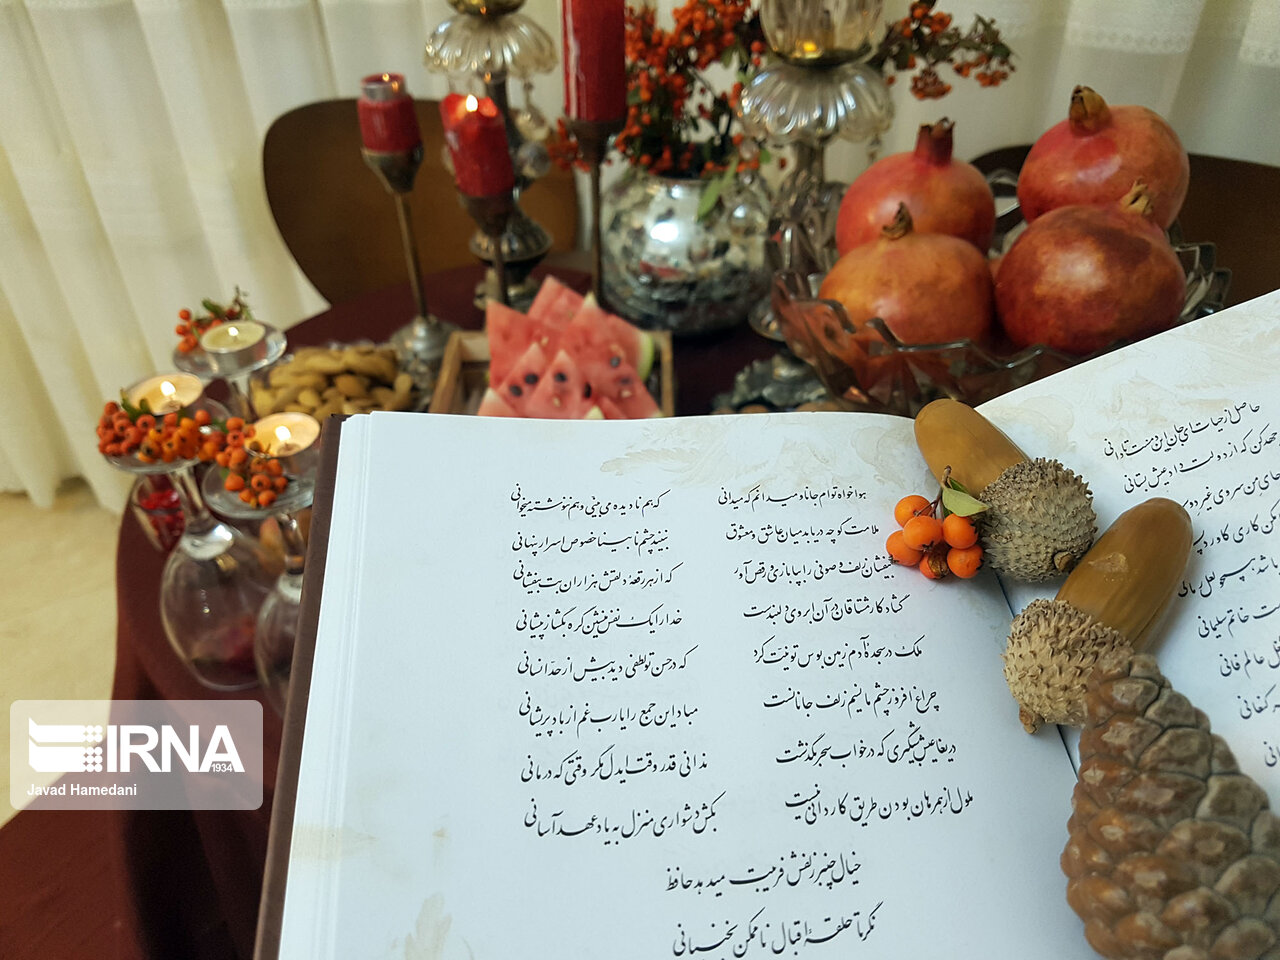 هواخواه توام جانا و میدانم که میدانی که هم نادیده می‌بینی و هم ننوشته میخوانی
ملامت گو چه دریابد میان عاشق و معشوق نبیند چشم نابینا خصوص اسرار پنهانی
بیفشان زلف و صوفی را بپا بازی و رقص آور که از هر رقعهٔ دلقش هزاران بت بیفشانی
گشاد کار مشتاقان در آن ابروی دلبندست خدا را یک نفس بنشین گره بگشا ز پیشانی
ملک در سجدهٔ آدم زمین بوس تو نیت کرد که در حسن تو لطفی دید بیش از حد انسانی
چراغ افروز چشم ما نسیم زلف جانانست مباد این جمع را یارب غم از باد پریشانی
دریغا عیش شبگیری که در خواب سحر بگذشت ندانی قدر وقت ایدل مگر وقتی که درمانی
ملول از همرهان بودن طریق کاردانی نیست بکش دشواری منزل به یاد عهد آسانی
خیال چنبر زلفش فریبت میدهد حافظ
نگر تا حلقهٔ اقبال ناممکن نجنبانی
حاصل از حیات ای جان این دمست تا دانی
که از دولت داد عیش بستانی
خاتم سلیمانی
عالم فانی
کنعانی
IRNA
1934
Javad Hamedani